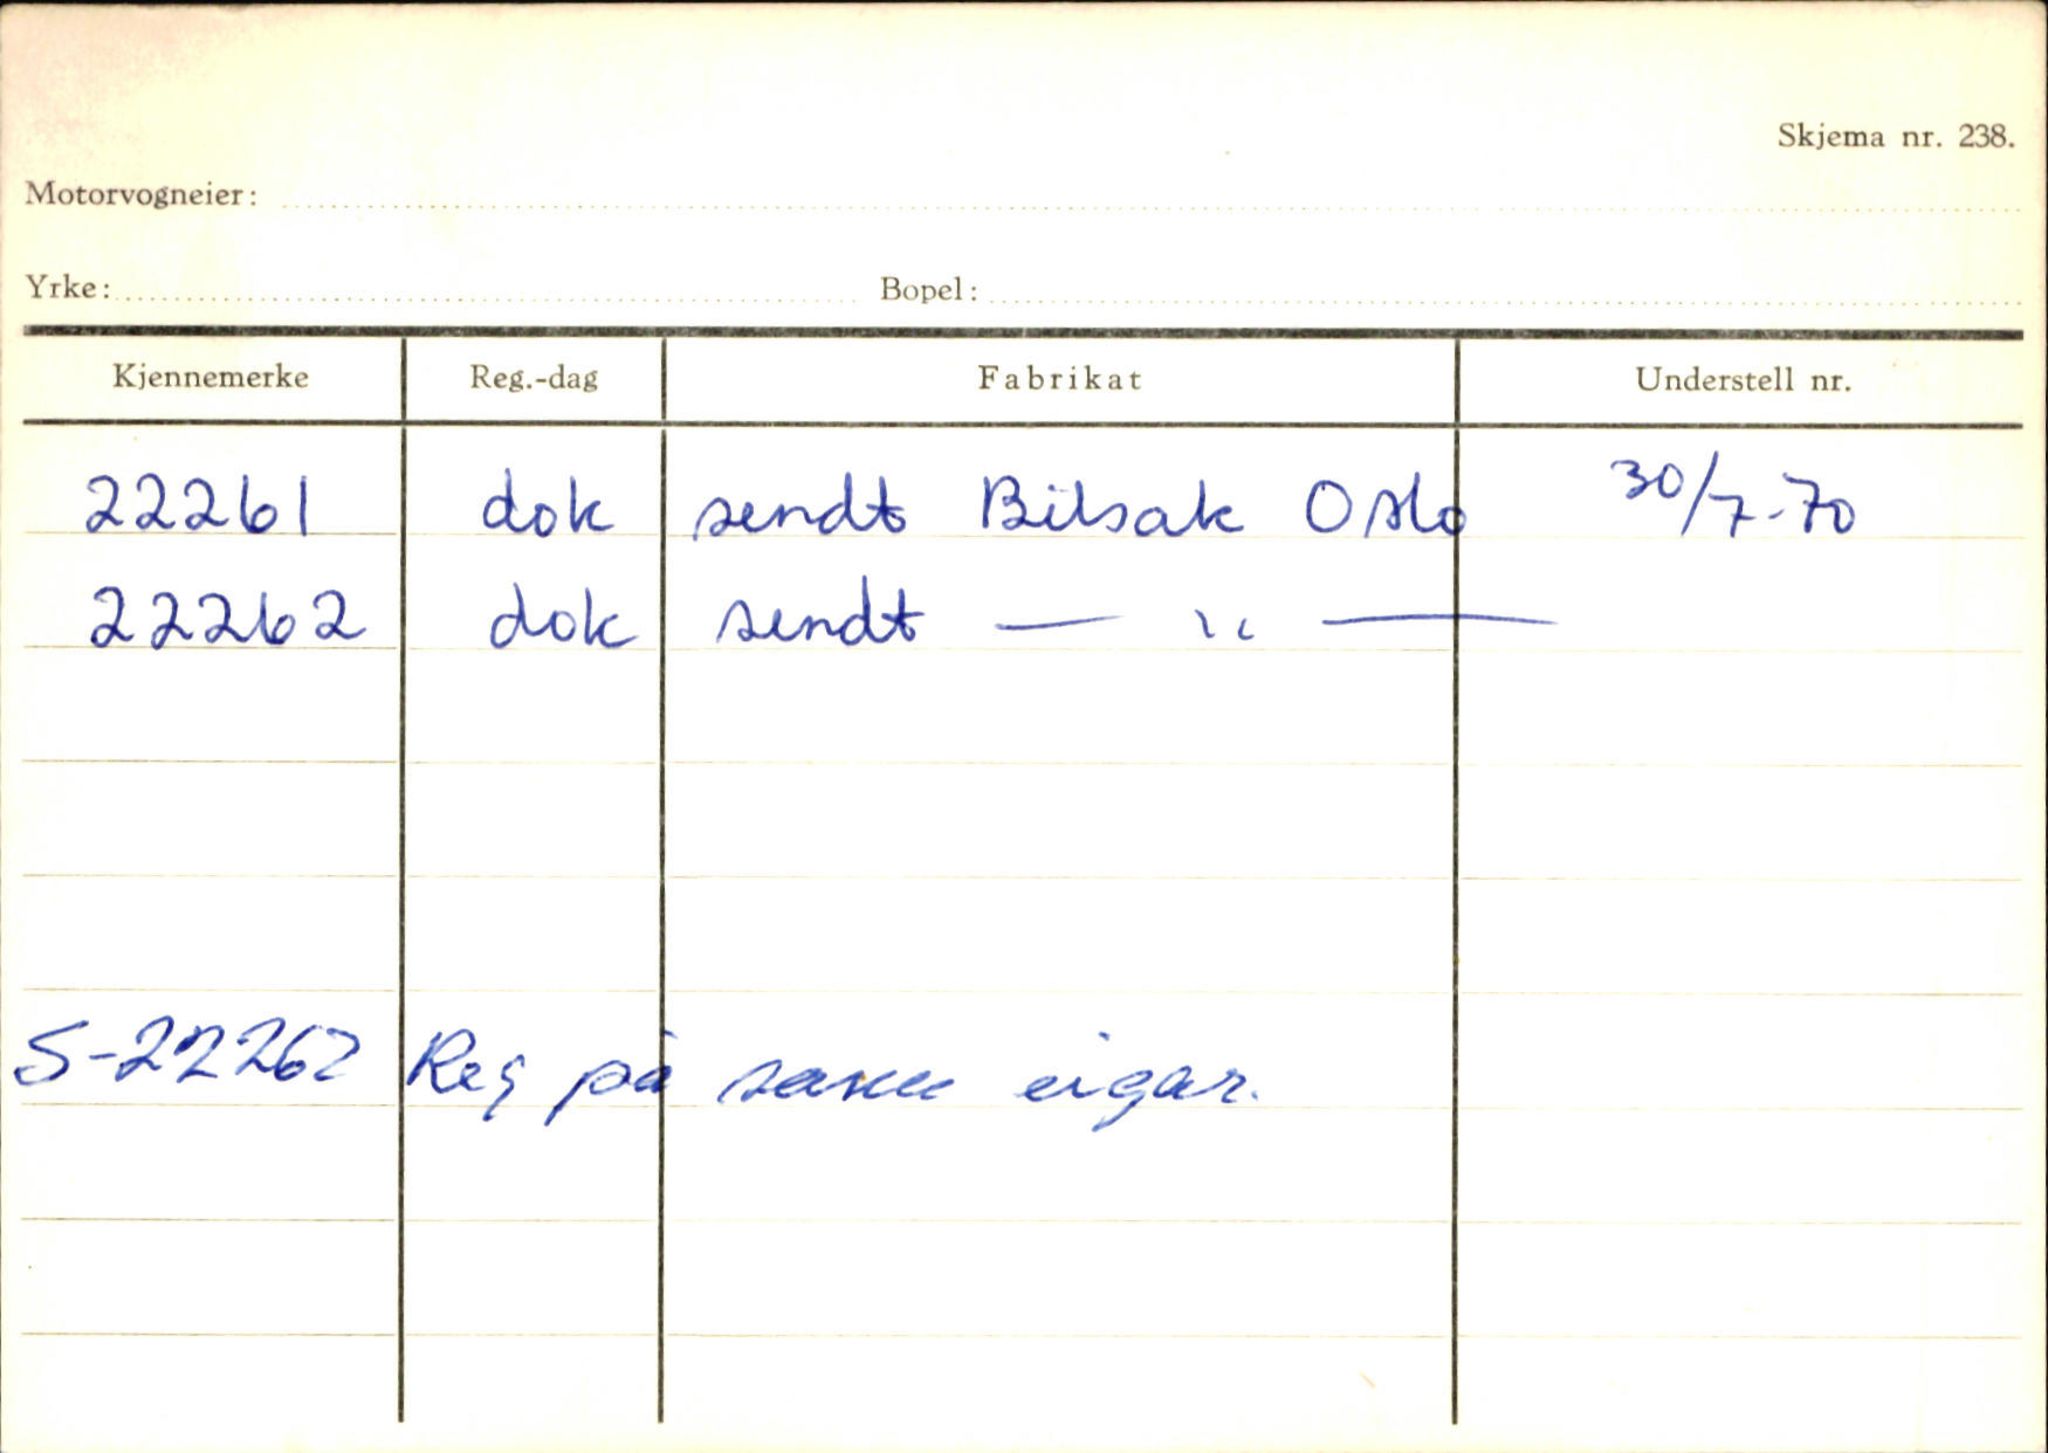 Skjema nr. 238.
Motorvogneier:
Yrke: Bopel:
Kjennemerke Reg.-dag Fabrikat Understell nr.
22261 dok sendt Bilsak Oslo 30/7-70
22262 dok sendt — " —
S-22262 Reg på same eigar.